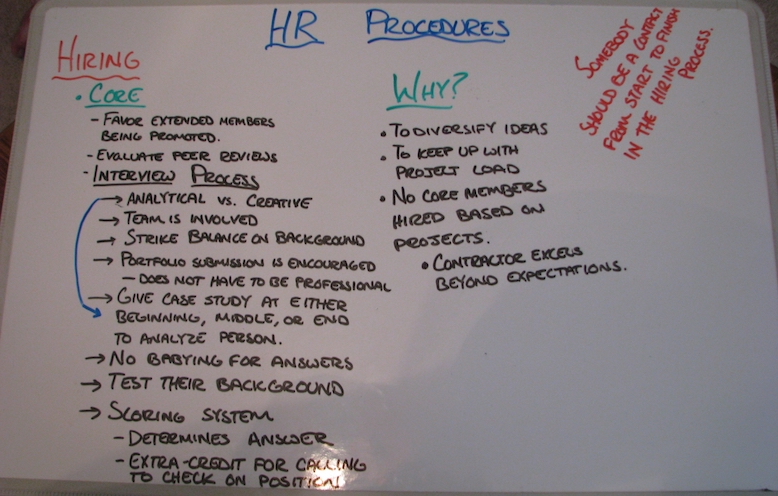 HR PROCEDURES
HIRING
• CORE
- FAVOR EXTENDED MEMBERS
BEING PROMOTED.
- EVALUATE PEER REVIEWS
- INTERVIEW PROCESS
→ ANALYTICAL VS. CREATIVE
→ TEAM IS INVOLVED
→ STRIKE BALANCE ON BACKGROUND
→ PORTFOLIO SUBMISSION IS ENCOURAGED
- DOES NOT HAVE TO BE PROFESSIONAL
→ GIVE CASE STUDY AT EITHER
BEGINNING, MIDDLE, OR END
TO ANALYZE PERSON.
→ NO BABYING FOR ANSWERS
→ TEST THEIR BACKGROUND
→ SCORING SYSTEM
- DETERMINES ANSWER
- EXTRA-CREDIT FOR CALLING
TO CHECK ON POSITION
WHY?
• TO DIVERSIFY IDEAS
• TO KEEP UP WITH
PROJECT LOAD
• NO CORE MEMBERS
HIRED BASED ON
PROJECTS.
• CONTRACTOR EXCELS
BEYOND EXPECTATIONS.
SOMEBODY
SHOULD BE A CONTACT
FROM START TO FINISH
IN THE HIRING
PROCESS.